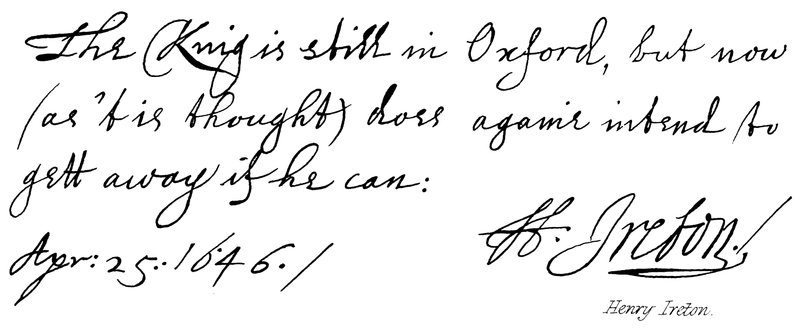 The King is still in Oxford, but now
(as 't is thought) does againe intend to
gett away if he can:
Apr: 25: 1646. /
H. Ireton. /
Henry Ireton.